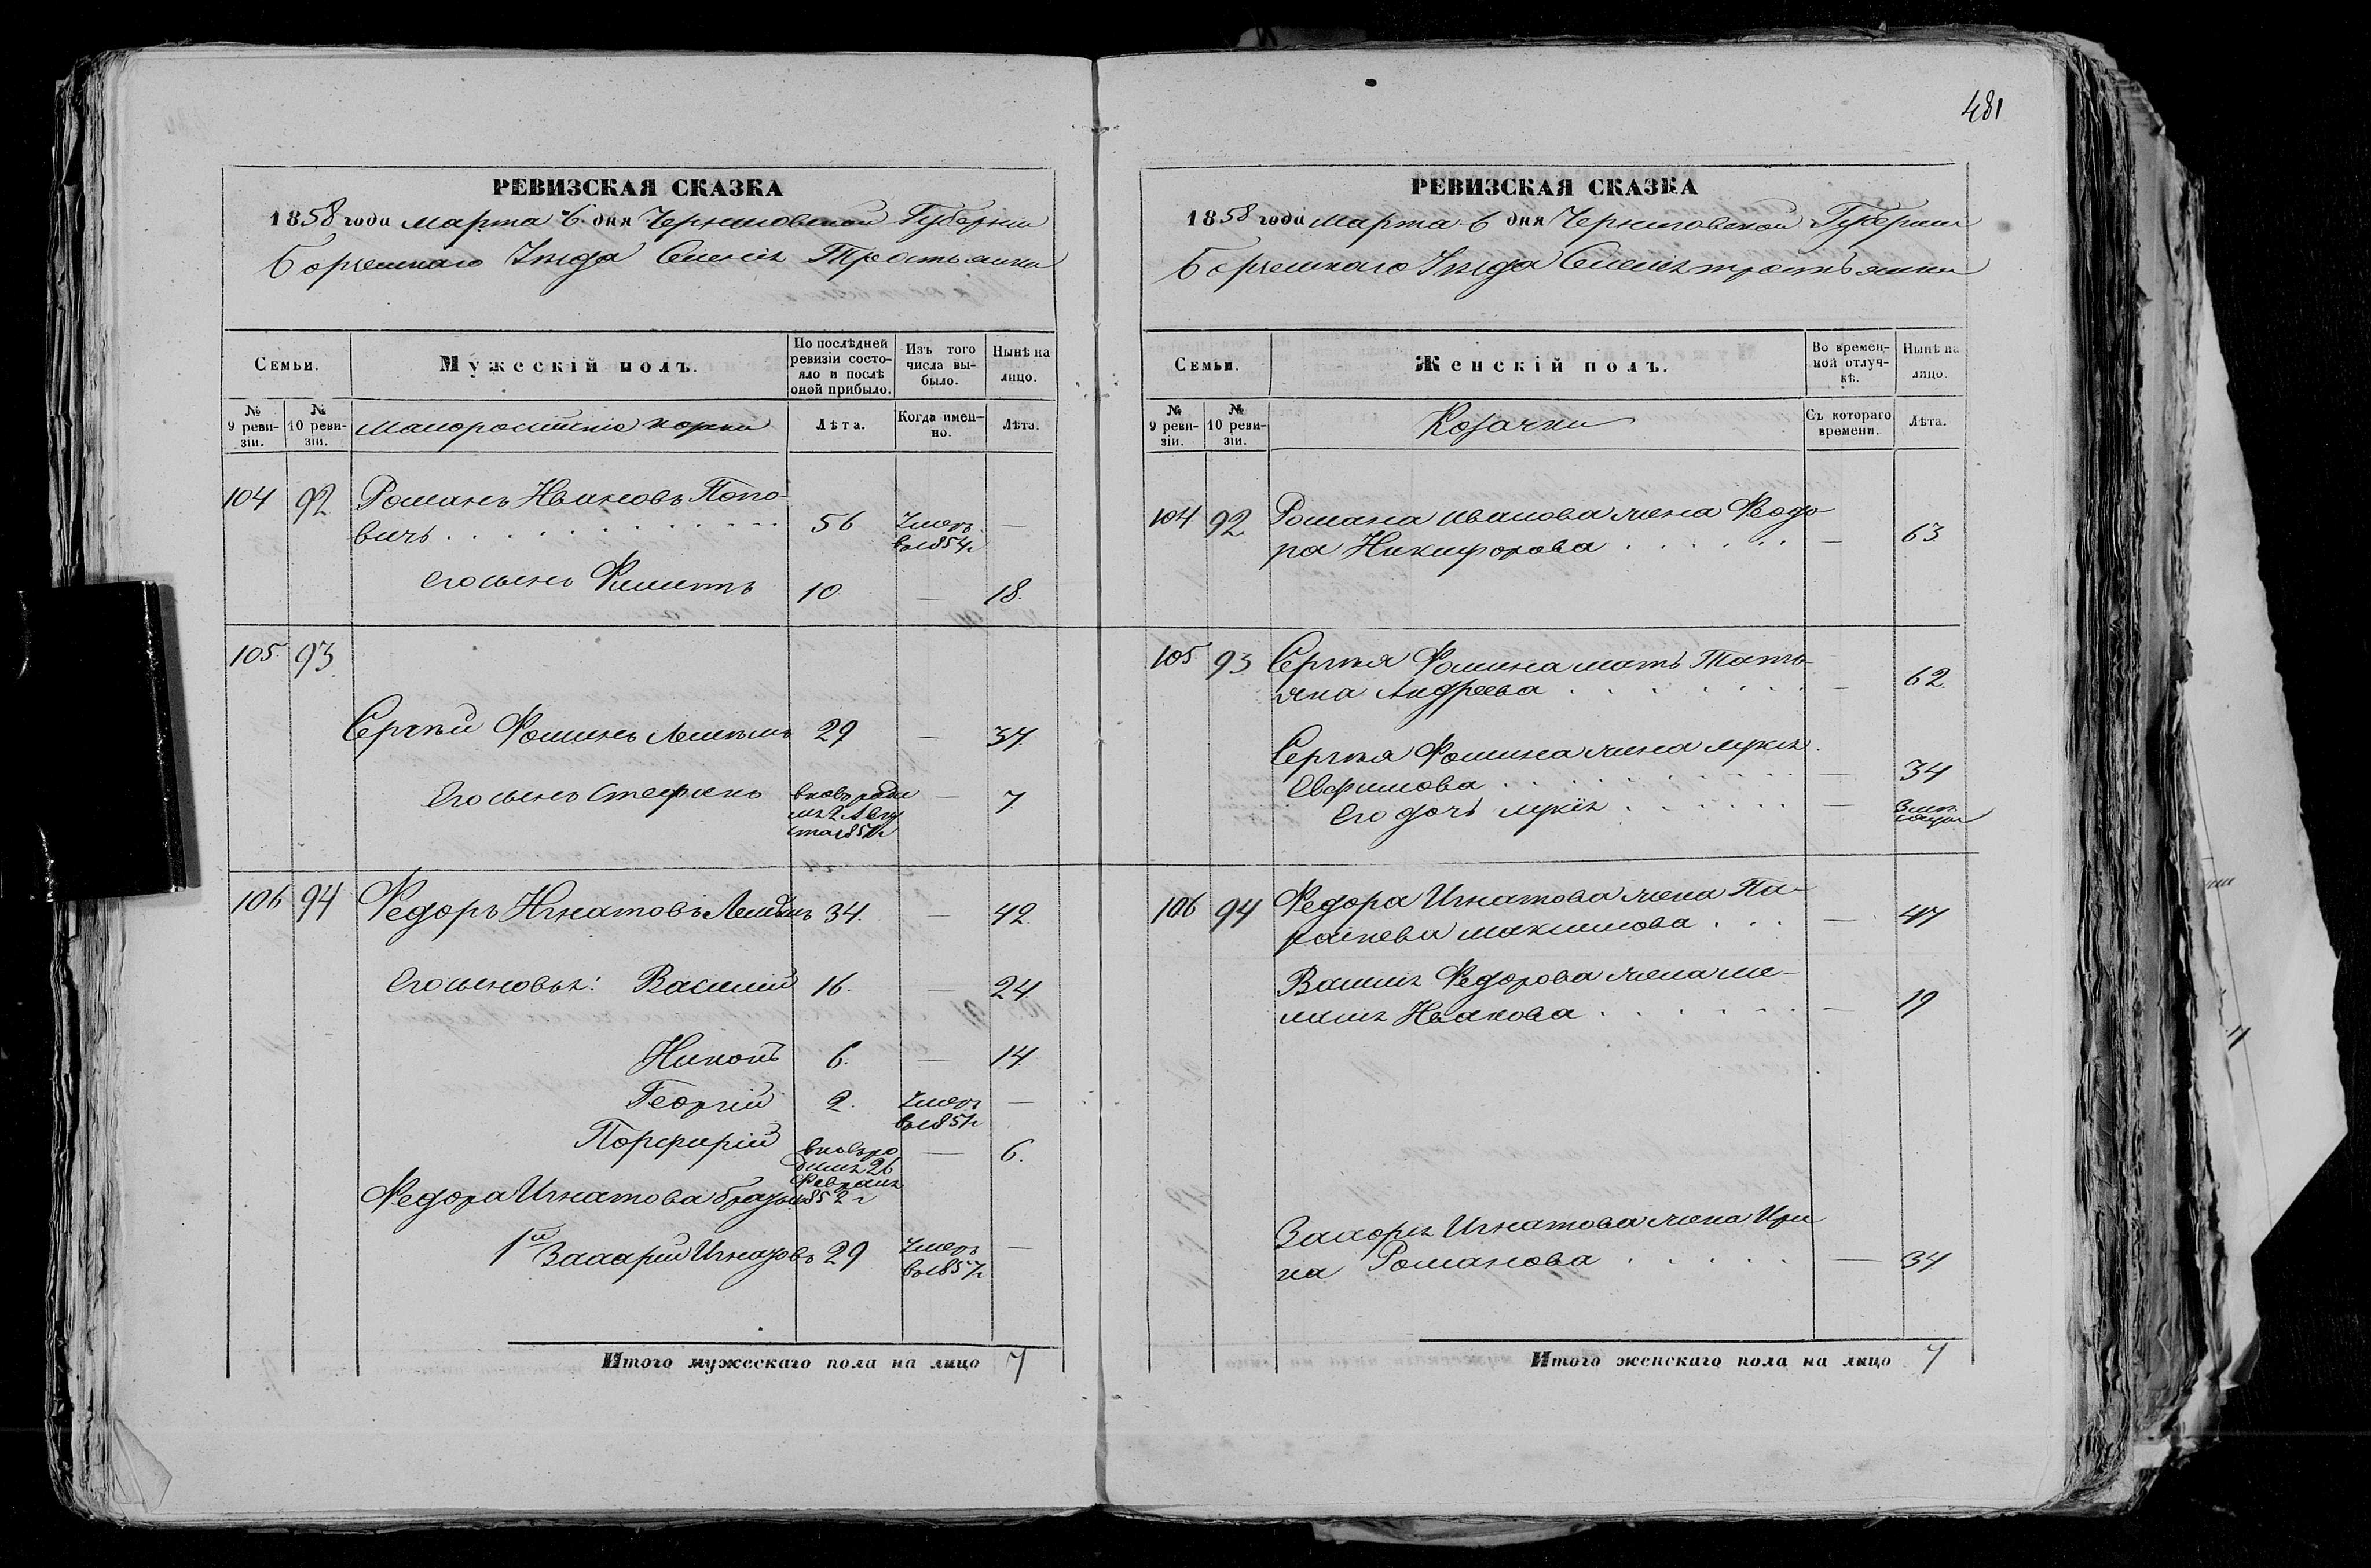 481
РЕВИЗСКАЯ СКАЗКА
1858 года Марта 6 дня Черниговской Губернии
Борзенскаго Уезда Селенія Тростянки
Семьи.
Мужескій полъ.
По послѣдней ревизіи состо-
яло и послѣ оной прибыло.
Изъ того числа вы-
было.
Нынѣ на лицо.
№ 9 реви-
зіи.
№ 10 реви-
зіи.
Малоросійскіе
Лѣта.
Когда имен-
но.
Лѣта.
104 92 Романъ Ивановъ Попо-
вичъ 56 Умеръ в 1854 г —
его сынъ Филиппъ 10 — 18.
105. 93.
Сергѣй Фоминъ 29 — 37
Его сынъ Стефанъ вновь роди
лся 2 Авгу
ста 185 г — 7.
106 94 Федоръ Игнатовъ 34. — 42
Его сыновья: Василій 16. — 24.
Никонъ 6. — 14.
Георгій 2. Умеръ в 1851 г —
Порфирій вновь ро
дился 26
Февраля
1852 г — 6.
Федора Игнатова братья
1й Захарій Игнатовъ 29 Умеръ в 1857 г —
Итого мужескаго пола на лицо 7
РЕВИЗСКАЯ СКАЗКА
1858 года Марта 6 дня Черниговской Губерніи
Борзенскаго Уезда Селенія Тростьянки
Семьи.
Женскій полъ.
Во времен-
ной отлуч-
кѣ.
Нынѣ на лицо.
№ 9 реви-
зіи.
№ 10 реви-
зіи.
Козачки
Съ котораго времени.
Лѣта.
104 92 Романа Иванова жена Феодо
ра Никифорова — 63
105. 93 Сергѣя Фомина мать Тать-
яна Андреева — 62.
Сергѣя Фомина жена
Евфимова — 34
Его дочь — 3 мѣ-
сяца
106 94 Федора Игнатова жена Па-
раскева Максимова — 47
Василія Федорова жена
Иванова — 19
Захарія Игнатова жена Ири
на Романова — 34
Итого женскаго пола на лицо 7